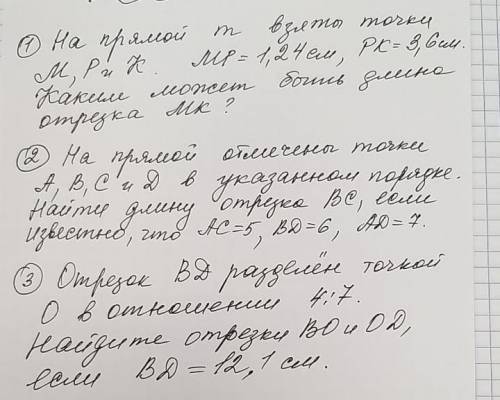 ① На прямой m взяты точки
М, Р и К. МР = 1,24 см, РК = 3,6 см.
Каким может быть длина
отрезка МК?
② На прямой отмечены точки
А, В, С и D в указанном порядке.
Найти длину отрезка ВС, если
известно, что АС=5, BD=6, AD=7.
③ Отрезок BD разделён точкой
О в отношении 4:7.
Найдите отрезки ВО и OD,
если BD = 12,1 см.